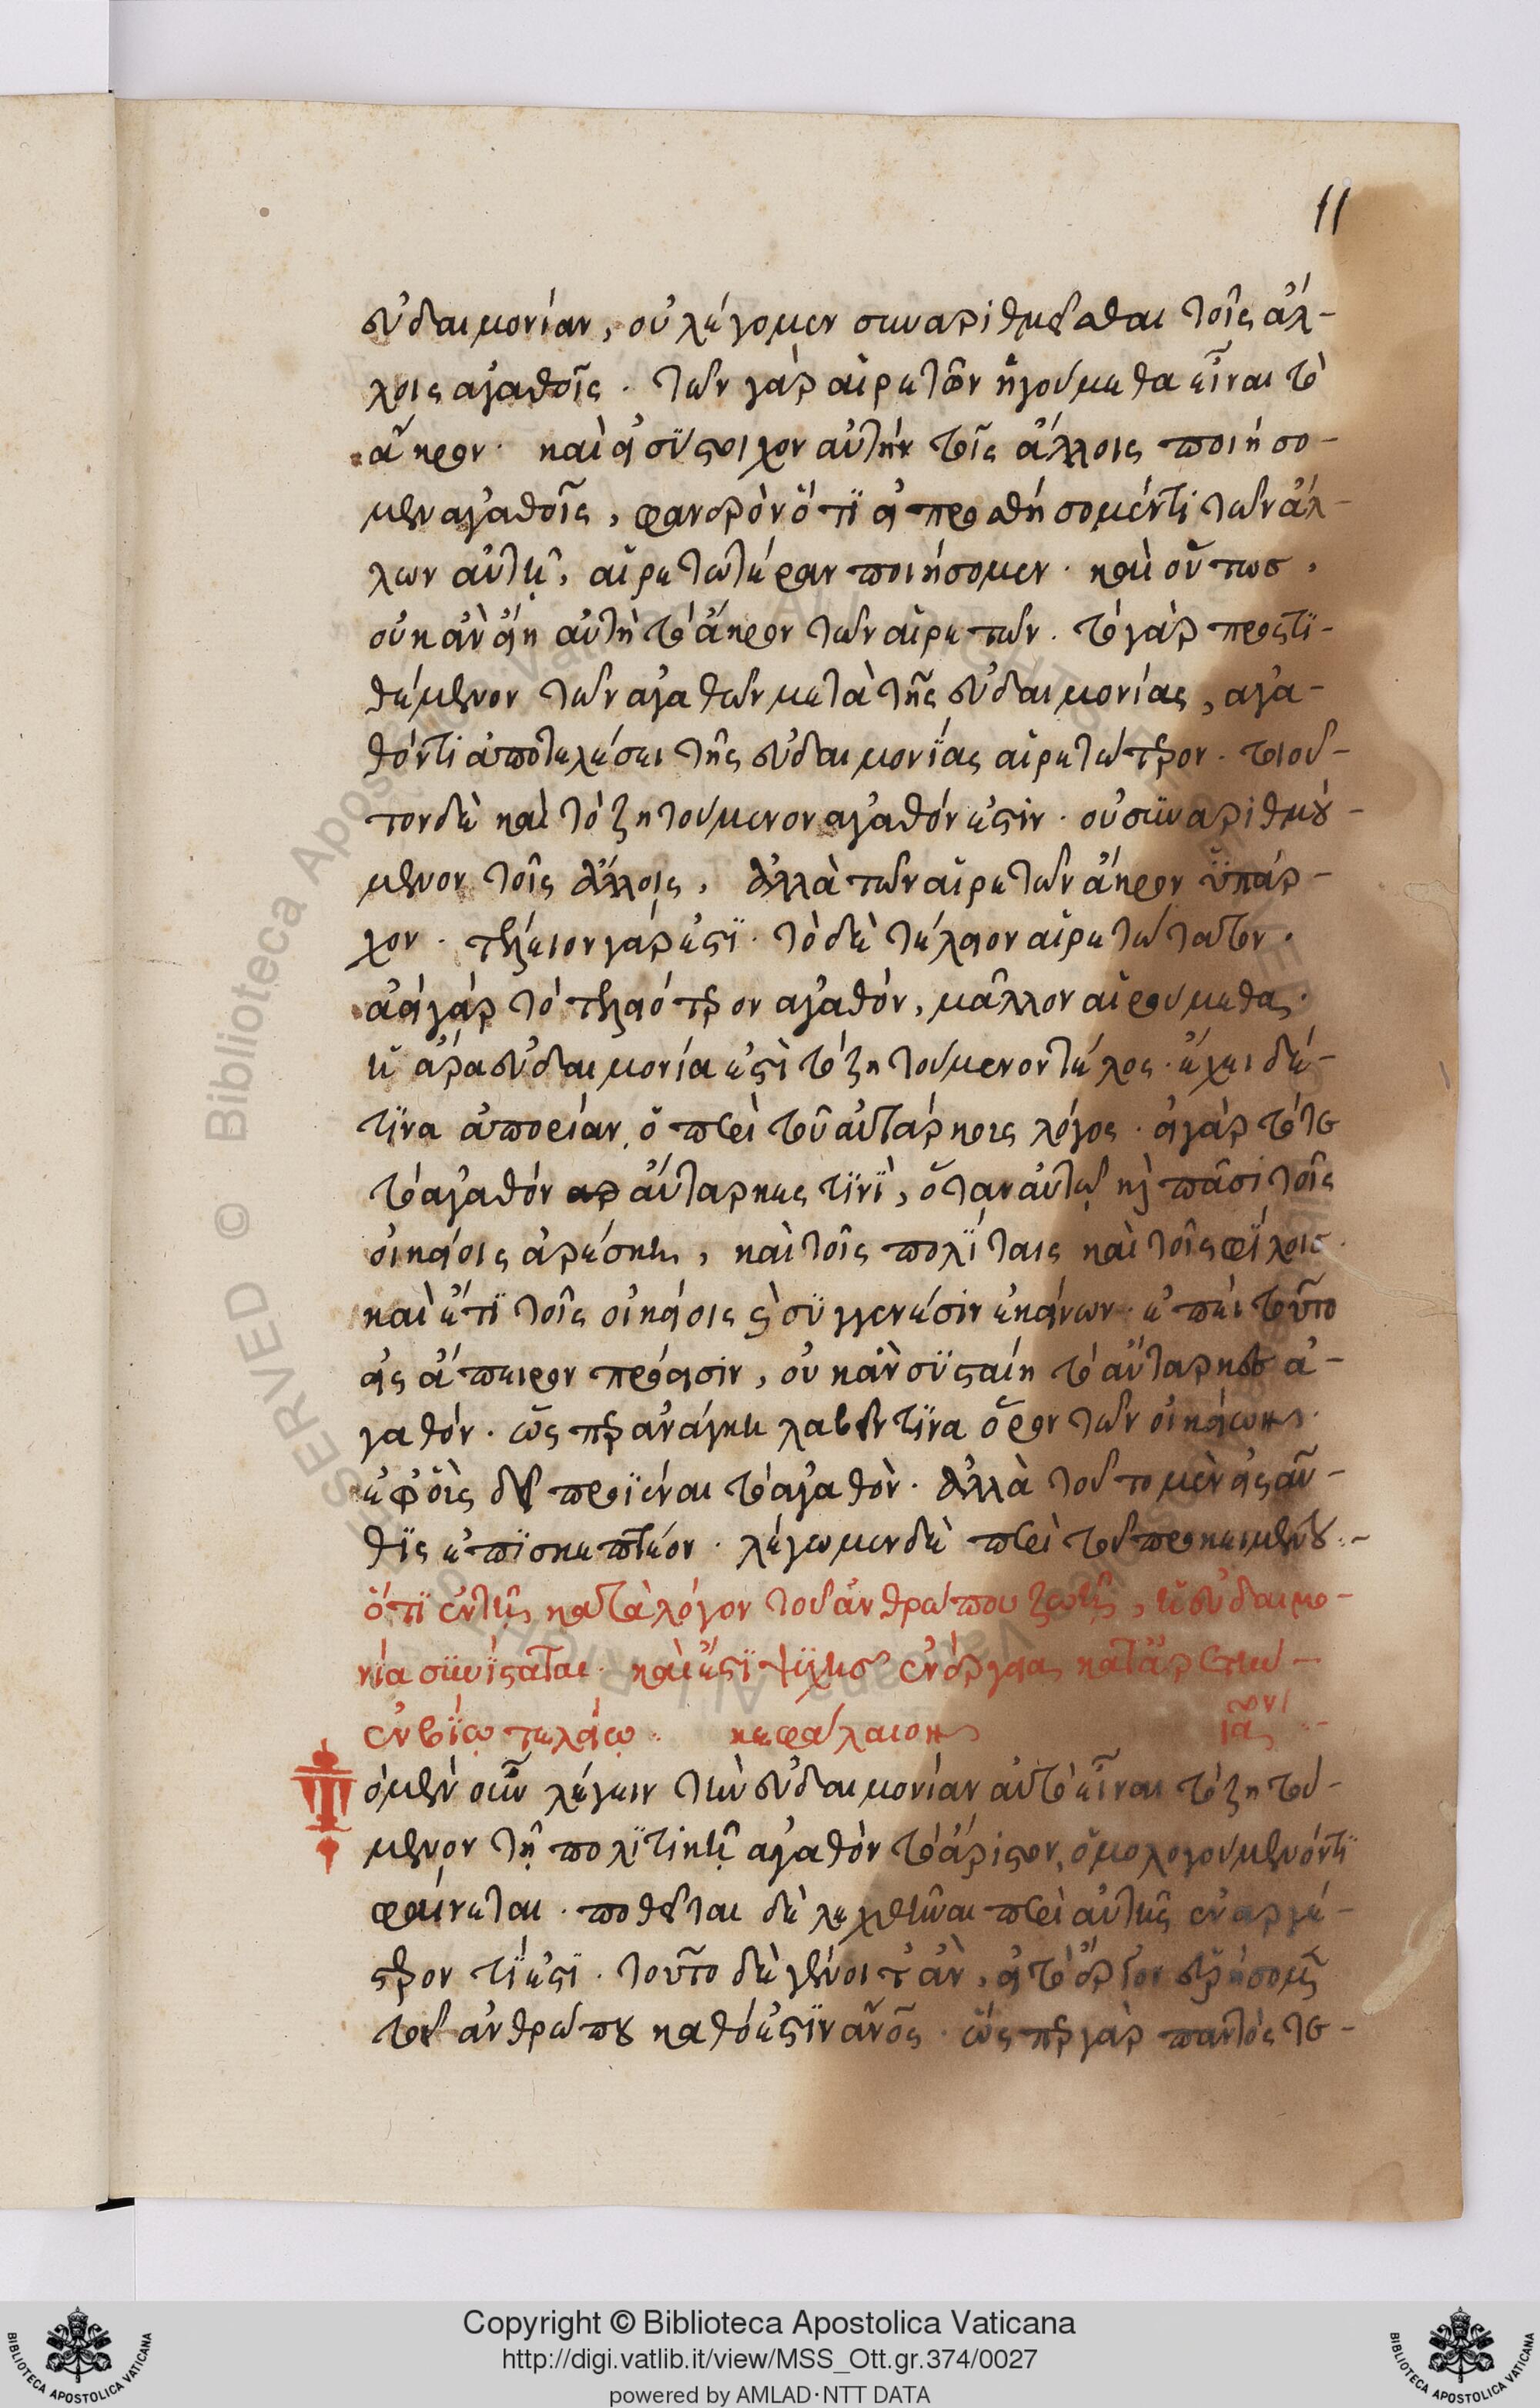 11
εὐδαιμονίαν, οὐ λέγομεν συναριθμεῖσθαι τοῖς ἄλ-
λοις ἀγαθοῖς. τῶν γὰρ αἱρετῶν ἡγούμεθα εἶναι τὸ
ἄκρον. καὶ εἰ σύστοιχον αὐτὴν τοῖς ἄλλοις ποιήσο-
μεν ἀγαθοῖς, φανερὸν ὅτι εἰ προσθήσομέν τι τῶν ἄλ-
λων αὐτῇ, αἱρετωτέραν ποιήσομεν. καὶ οὕτως,
οὐκ ἂν εἴη αὐτὴ τὸ ἄκρον τῶν αἱρετῶν. τὸ γὰρ προστι-
θέμενον τῶν ἀγαθῶν μετὰ τῆς εὐδαιμονίας, ἀγα-
θόν τι ἀποτελέσει τῆς εὐδαιμονίας αἱρετώτερον. τοιοῦ-
τον δὲ καὶ τὸ ζητούμενον ἀγαθόν ἐστιν. οὐ συναριθμού-
μενον τοῖς ἄλλοις, ἀλλὰ τῶν αἱρετῶν ἄκρον ὑπάρ-
χον. τέλειον γάρ ἐστι. τὸ δὲ τέλειον αἱρετώτατον.
ἀεὶ γὰρ τὸ τελειότερον ἀγαθόν, μᾶλλον αἱρούμεθα.
ἡ ἄρα εὐδαιμονία ἐστὶ τὸ ζητούμενον τέλος. ἔχει δέ
τινα ἀπορίαν, ὁ περὶ τοῦ αὐτάρκους λόγος. εἰ γὰρ τότε
τὸ ἀγαθὸν αὔταρκες τινὶ, ὅταν αὐτῷ καὶ πᾶσι τοῖς
οἰκείοις ἀρέσκῃ, καὶ τοῖς πολίταις καὶ τοῖς φίλοις.
καὶ ἔτι τοῖς οἰκείοις καὶ συγγενέσιν ἐκείνων. ἐπεὶ τοῦτο
εἰς ἄπειρον πρόεισιν, οὐκ ἂν συσταίη τὸ αὔταρκες ἀ-
γαθόν. ὥσπερ ἀνάγκη λαβεῖν τινα ὅρον τῶν οἰκείων.
ἐφ' οἷς δεῖ προϊέναι τὸ ἀγαθὸν. ἀλλὰ τοῦτο μὲν εἰς αὖ-
θις ἐπισκεπτέον. λέγωμεν δὲ περὶ τοῦ προκειμένου.
ὅτι ἐν τῇ κατὰ λόγον τοῦ ἀνθρώπου ζωῇ, ἡ εὐδαιμο-
νία συνίσταται. καὶ ἔστι ψυχῆς ἐνέργεια κατ' ἀρετὴν
ἐν βίῳ τελείῳ. κεφάλαιον ιαον
Τὸ μὲν οὖν λέγειν τὴν εὐδαιμονίαν αὐτὸ εἶναι τὸ ζητού-
μενον τῇ πολιτικῇ ἀγαθὸν τὸ ἄριστον, ὁμολογούμενόν τι
φαίνεται. ποθεῖται δὲ λεχθῆναι περὶ αὐτῆς ἐναργέ-
στερον τί ἐστι. τοῦτο δὲ γένοιτ' ἂν, εἰ τὸ ἔργον εὑρήσομεν
τοῦ ἀνθρώπου καθό ἐστιν ἄνος. ὥσπερ γὰρ παντός τε-
Copyright © Biblioteca Apostolica Vaticana
http://digi.vatlib.it/view/MSS_Ott.gr.374/0027
powered by AMLAD·NTT DATA